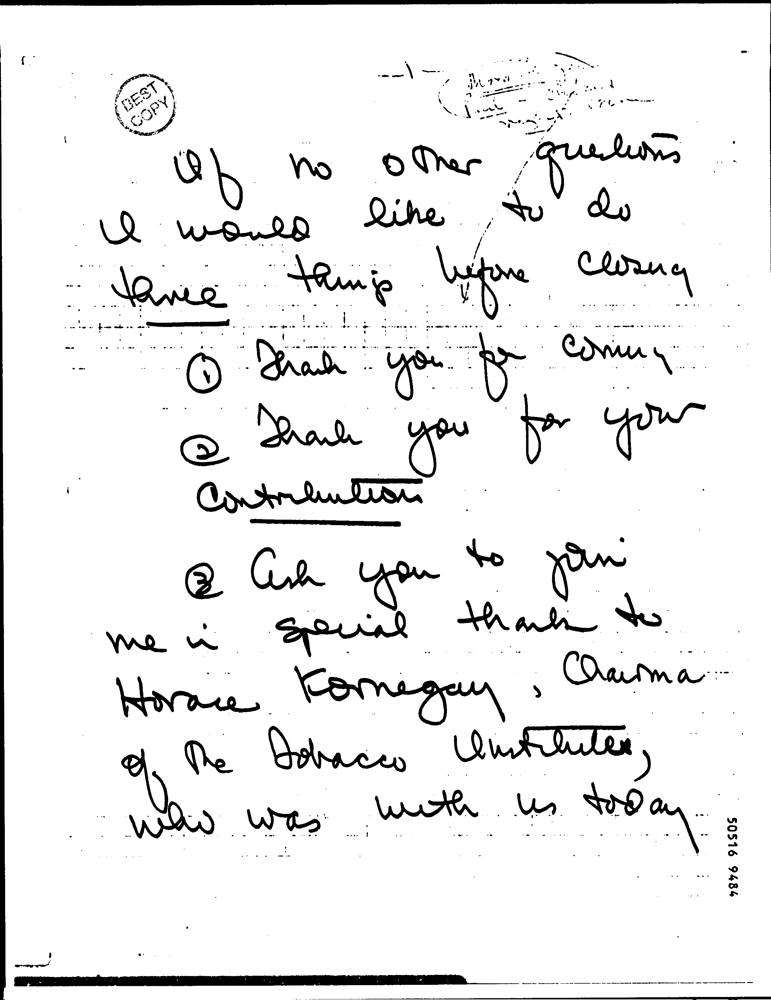 BEST
COPY
If no other questions
I would like to do
three things before closing
① Thank you for coming
② Thank you for your
Contribution
③ Ask you to join
me in special thanks to
Horace Kornegay, Chairma
of the Tobacco Institutes,
who was with us today
50516 9484